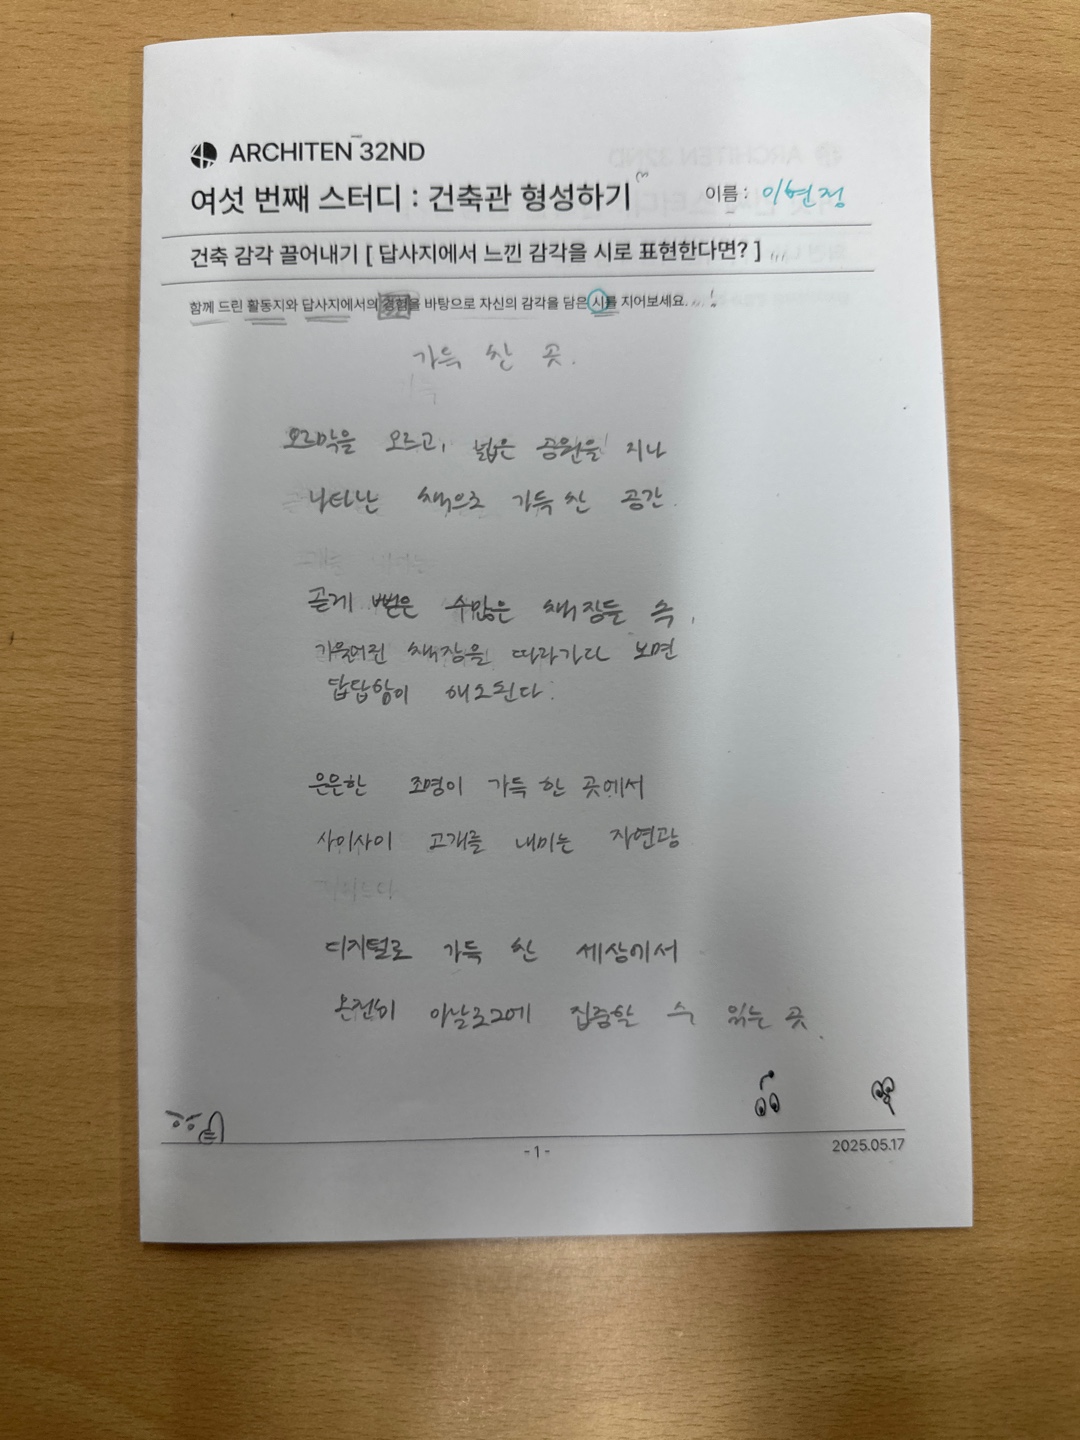 ARCHITEN 32ND
여섯 번째 스터디 : 건축관 형성하기
이름 : 이현정
건축 감각 끌어내기 [ 답사지에서 느낀 감각을 시로 표현한다면? ]
함께 드린 활동지와 답사지에서의 경험을 바탕으로 자신의 감각을 담은 시를 지어보세요.
가득 찬 곳.
오르막을 오르고, 넓은 공원을 지나
나타난 책으로 가득 찬 공간.
곧게 뻗은 수많은 책장들 속,
기울어진 책장을 따라가다 보면
답답함이 해소된다.
은은한 조명이 가득 한 곳에서
사이사이 고개를 내미는 자연광
디지털로 가득 찬 세상에서
온전히 아날로그에 집중할 수 있는 곳.
- 1 -
2025.05.17